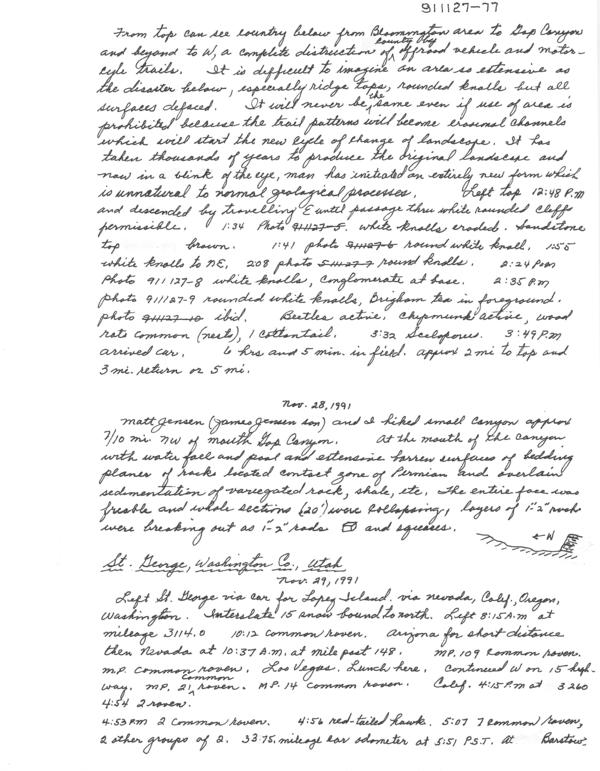 911127-77
From top can see country below from Bloomington area to Gap Canyon
and beyond to W, a complete distruction of country by offroad vehicle and motor-
cycle trails. It is difficult to imagine an area so extensive as
the disaster below, especially ridge tops, rounded knolls but all
surfaces defaced. It will never be the same even if use of area is
prohibited because the trail patterns will become erosional channels
which will start the new cycle of change of landscape. It has
taken thousands of years to produce the original landscape and
now in a blink of the eye, man has initiated an entirely new form which
is unnatural to normal geological processes. Left top 12:48 P.M
and descended by travelling E until passage thru white rounded cliffs
permissible. 1:34 Photo 911127-5. white knolls eroded. Sandstone
top brown. 1:41 photo 911127-6 round white knoll. 1:55
white knolls to NE, 208 photo round knolls. 2:24 P.m
Photo 911127-8 white knolls, Conglomerate at base. 2:35 P.m
photo 911127-9 rounded white knolls, Brigham tea in foreground.
photo 911127-10 ibid. Beetles active. Chipmunk active, wood
rats common (nests), 1 cottontail. 3:32 Sceloporus. 3:49 P.M
arrived car. 6 hrs and 5 min. in field. approx 2 mi to top and
3 mi. return or 5 mi.
Nov. 28, 1991
Matt Jensen (James Jensen son) and I hiked small canyon approx
7/10 mi. NW of mouth Gap Canyon. At the mouth of the canyon
with water fall and pool and extensive barren surfaces of bedding
planes of rocks located contact zone of Permian and overlain
sedimentation of variegated rock, shale, etc. The entire face was
freable and whole sections (20') were collapsing, layers of 1"-2" rock
were breaking out as 1"-2" rods and squares.
← W
St. George, Washington Co., Utah
Nov. 29, 1991
Left St. George via car for Lopez Island. via Nevada, Calif., Oregon,
Washington. Interstate 15 snow bound to north. Left 8:15 A.m at
mileage 3114.0 10:12 common raven. Arizona for short distance
then Nevada at 10:37 A.M. at mile post 148. MP. 109 common raven.
m.p. common raven. Las Vegas. Lunch here. Continued W on 15 high-
way. MP. 21 common raven. M.P. 14 common raven. Calif. 4:15 P.m at 3260
4:54 2 raven.
4:53 P.M 2 common raven. 4:56 red-tailed hawk. 5:07 7 common raven,
2 other groups of 2. 33.75. mileage car odometer at 5:51 P.S.T. At Barstow.